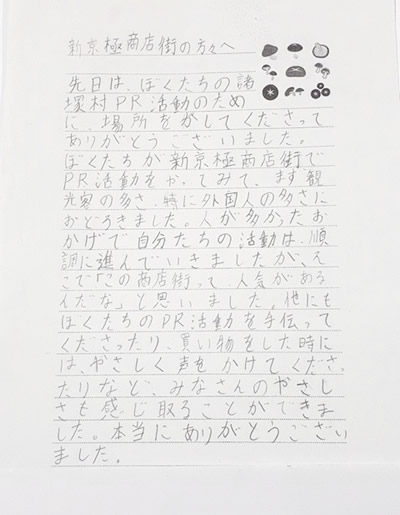 新京極商店街の方々へ
先日は、ぼくたちの諸
塚村PR活動のため
に、場所をかしてくださって
ありがとうございました。
ぼくたちが新京極商店街で
PR活動をやってみて、まず観
光客の多さ、特に外国人の多さに
おどろきました。人が多かったお
かげで自分たちの活動は、順
調に進んでいきましたが、そ
こで「この商店街って、人気がある
んだな」と思いました。他にも
ぼくたちのPR活動を手伝って
くださったり、買い物をした時に
は、やさしく声をかけてくださ
ったりなど、みなさんのやさし
さも感じ取ることができま
した。本当にありがとうござい
ました。